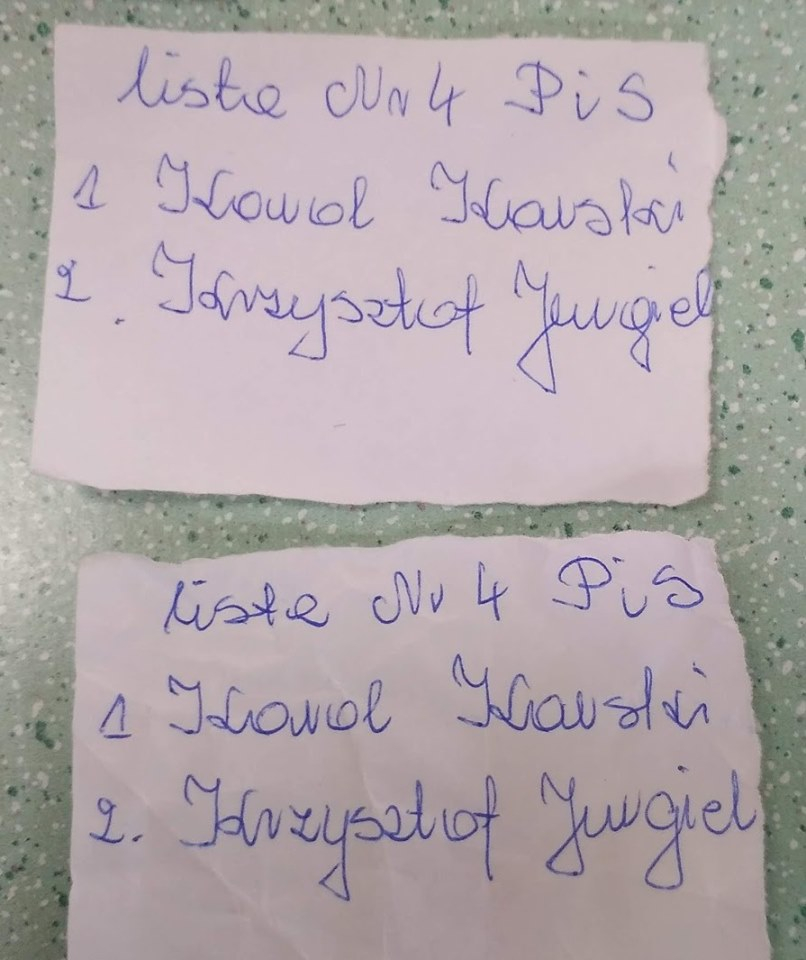 lista Nr 4 PiS
1 Karol Karski
2. Krzysztof Jurgiel
lista Nr 4 PiS
1 Karol Karski
2. Krzysztof Jurgiel